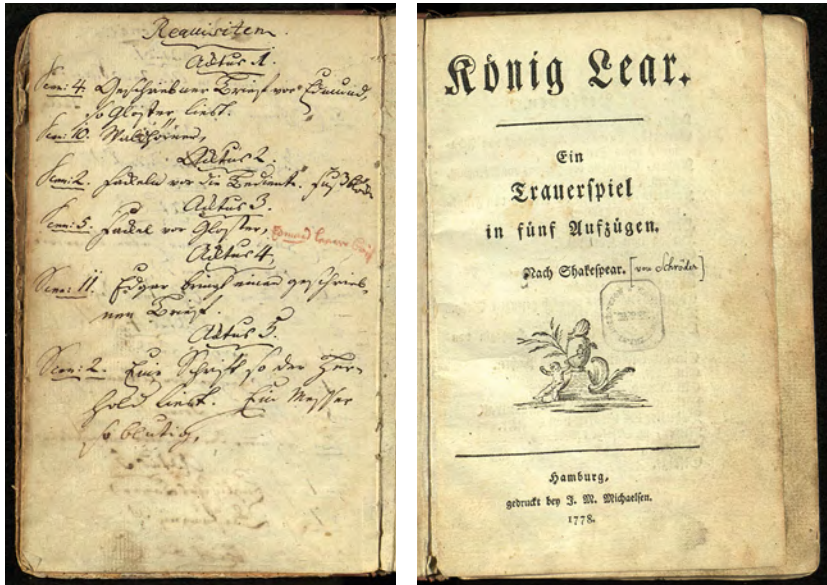 Requisiten.
Actus 1.
Scen: 4. Geschriebner Brief vor Edmund,
so Gloster liest.
Scen: 10. Waldhörner,
Actus 2.
Scen: 2. Fackeln vor die Bediente.
Actus 3.
Scen: 5. Fackel vor Gloster, Edmund
Actus 4,
Scen: 11. Edgar bringt einen geschrieb-
nen Brief.
Actus 5.
Scen: 2. Eine Schrift so der Her-
hold liest. Ein Messer
so blutig,
König Lear.
Ein
Trauerſpiel
in fünf Aufzügen.
Nach Shakeſpear. [von Schröder]
Hamburg,
gedruckt bey J. M. Michaelſen.
1778.